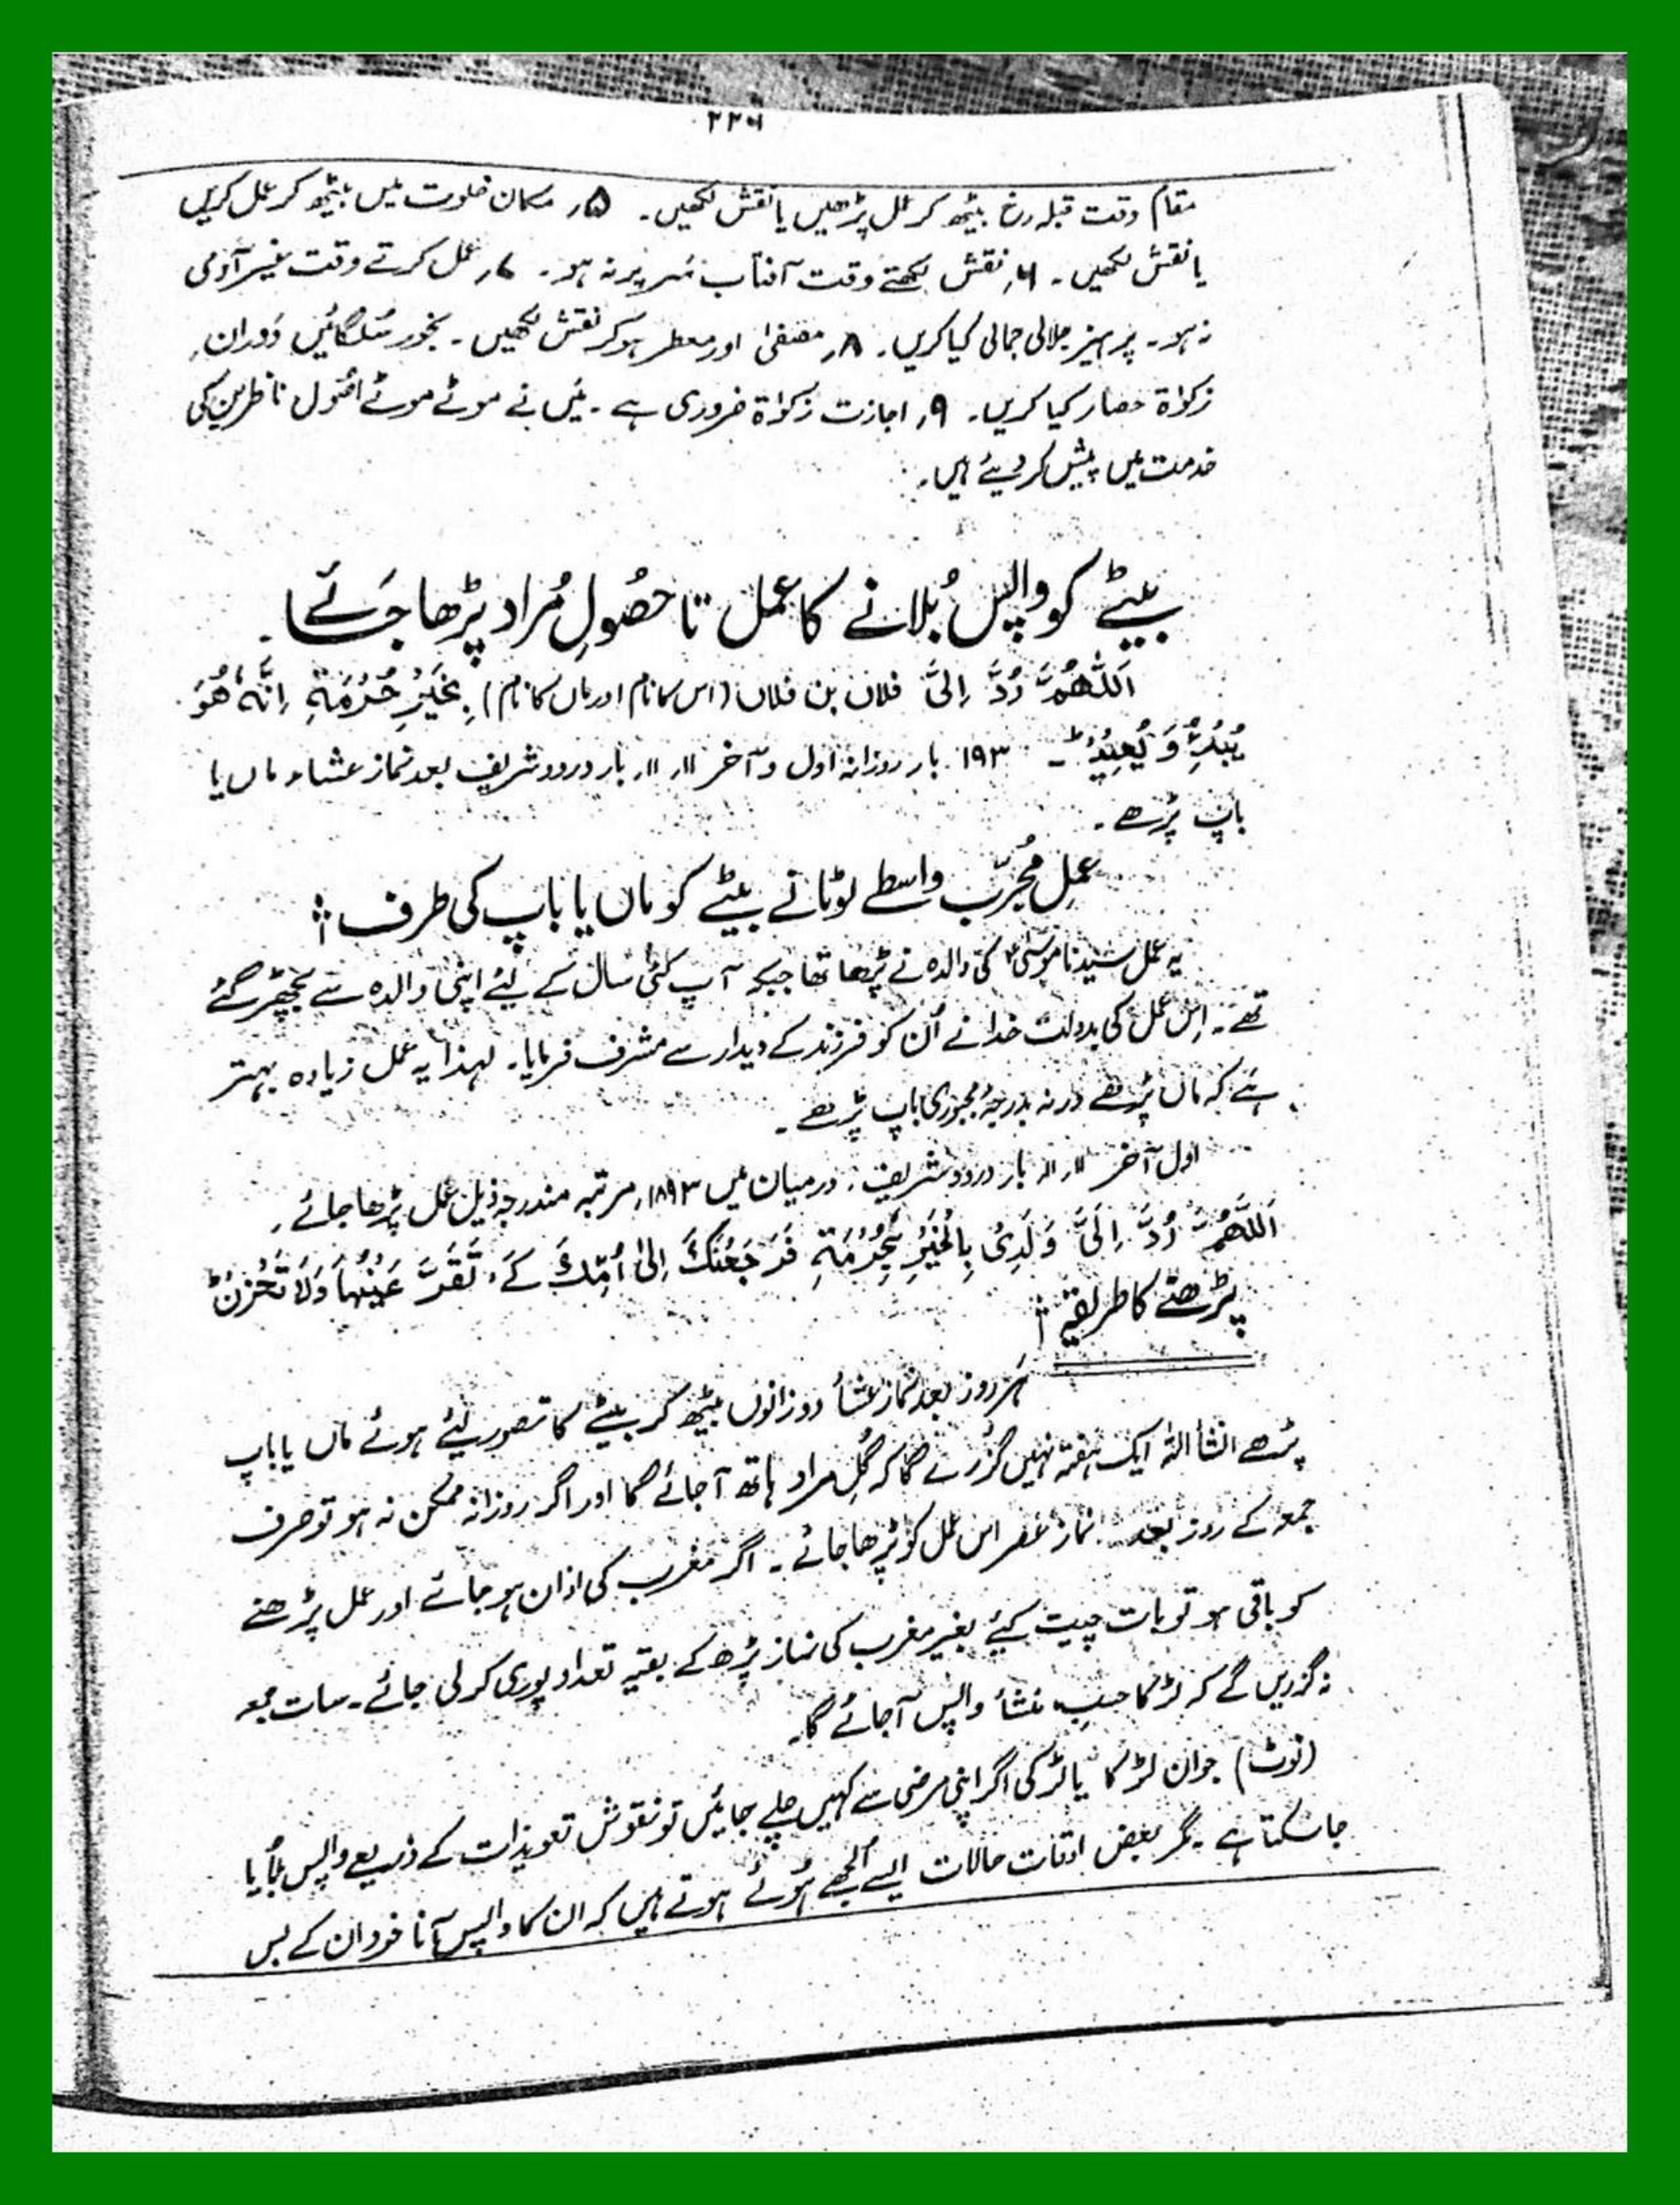 ۲۲۶
مقام وقت قبلہ رخ بیٹھ کر عمل پڑھیں یا نقش لکھیں۔ ۵؍ مکان خلوت میں بیٹھ کر عمل کریں
یا نقش لکھیں۔ ۶؍ نقش لکھتے وقت آفتاب سر پر نہ ہو۔ ۷؍ عمل کرتے وقت غیر آدمی
نہ ہو۔ پرہیز جلالی جمالی کیا کریں۔ ۸؍ مصفیٰ اور معطر ہو کر نقش لکھیں۔ بخور سُلگائیں دَوران
زکوٰۃ حصار کیا کریں۔ ۹؍ اجازت زکوٰۃ ضروری ہے۔ مَیں نے موٹے موٹے اصُول ناظرین کی
خدمت میں پیش کر دیئے ہیں۔
بیٹے کو واپس بُلانے کا عمل تا حصُولِ مُراد پڑھا جَائے۔
اَللّٰھُمَّ رُدَّ اِلَیَّ فلاں بن فلاں (اس کا نام اور ماں کا نام) بِخَیْرِ حُرُمَۃِ اِنَّہٗ ھُوَ
یُبْدِئُ وَ یُعِیْدُ ؕ۔ ۱۹۳ بار روزانہ اول و آخر ۱۱، ۱۱، بار درود شریف بعد نماز عشاء ماں یا
باپ پڑھے۔
عملِ مُجرّب واسطے لوٹانے بیٹے کو ماں یا باپ کی طرف :
یہ عمل سیدنا موسیٰؑ کی والدہ نے پڑھا تھا جبکہ آپ کئی سال کے لیئے اپنی والدہ سے بچھڑ گئے
تھے۔ اِس عمل کی بدولت خدا نے اُن کو فرزند کے دیدار سے مشرف فرمایا۔ لہذا یہ عمل زیادہ بہتر
ہے کہ ماں پڑھے ورنہ بدرجۂ مجبوری باپ پڑھے۔
اول آخر ۱۱، ۱۱ بار درود شریف، درمیان میں ۱۸۹۳، مرتبہ مندرجہ ذیل عمل پڑھا جائے۔
اَللّٰھُمَّ رُدَّ اِلَیَّ وَلَدِیْ بِالْخَیْرِ بِحُرُمَۃِ فَرَجَعْنٰکَ اِلیٰ اُمِّکَ کَےْ تَقَرَّ عَیْنُہَا وَلَا تَحْزَنْ ؕ
پڑھنے کا طریقہ :
ہَر روز بعد نماز عشأ دو زانوں بیٹھ کر بیٹے کا تصور لیئے ہوئے ماں یا باپ
پڑھے انشأاللہ ایک ہفتہ نہیں گزرے گا کہ گُلِ مراد ہاتھ آجائے گا اور اگر روزانہ ممکن نہ ہو تو صرف
جمعہ کے روز بعد نماز عصر اس عمل کو پڑھا جائے۔ اگر مغرب کی اذان ہو جائے اور عمل پڑھنے
کو باقی ہو تو بات چیت کیئے بغیر مغرب کی نماز پڑھ کے بقیہ تعداد پوری کر لی جائے۔ سات جمعہ
نہ گزریں گے کہ لڑکا حسب منشأ واپس آجائے گا۔
(نوٹ) جوان لڑکا یا لڑکی اگر اپنی مرضی سے کہیں چلے جائیں تو نقوش تعویذات کے ذریعے واپس بُلایا
جا سکتا ہے۔ مگر بعض اوقات حالات ایسے اُلجھے ہُوئے ہوتے ہیں کہ ان کا واپس آنا خود ان کے بس